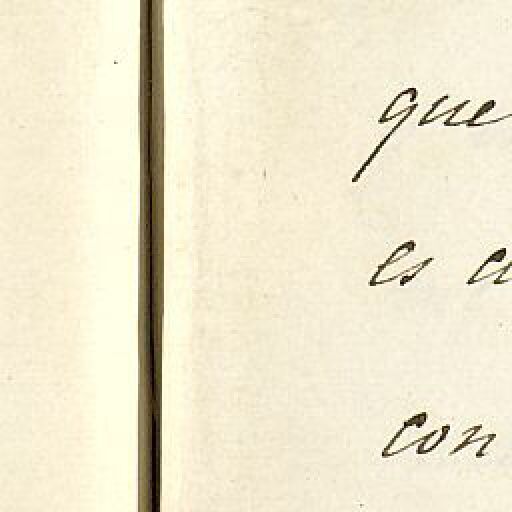 que
es
con